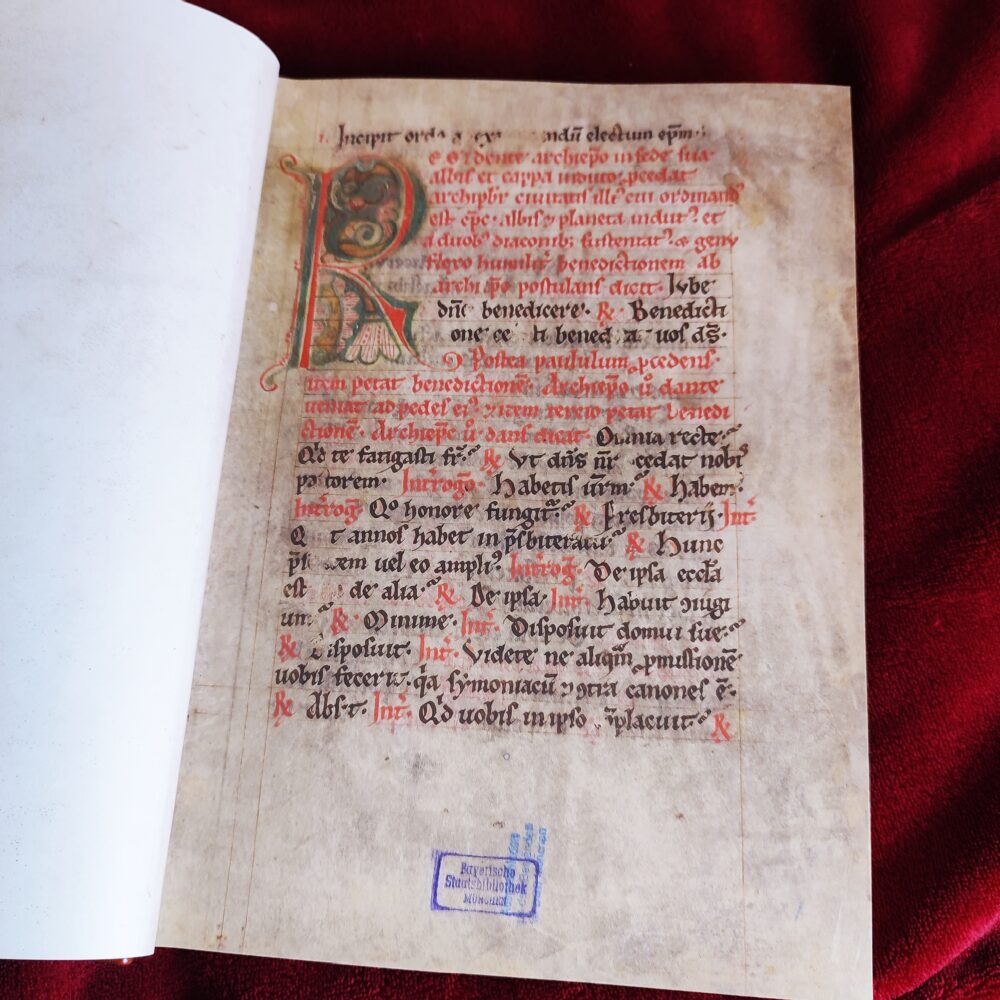 Incipit ordo a exa ndū electum ep̄m.
Residente archiep̄o in sede sua
albis et cappa induto p̱cedat
archipbr̄ ciuitatis illiꝰ cui ordinandꝰ
est ep̄c. albis & planeta indutꝰ et
a duobꝰ diaconibꝫ sustentatꝰ & genu
flexo humilit̄ benedictionem ab
archiep̄o postulans dicit. Iube
dn̄e benedicere. ℟ Benedicti
one ce ti bened a uos ds̄.
Postea paululum p̱cedens
item petat benedictionē. Archiep̄o ū dante
ueniat ad pedes eiꝰ & item tercio petat benedi
ctionē. Archiep̄c ū dans dicat. Omnia recte.
Qd̄ te fatigasti fr̄. ℟ Vt dn̄s nr̄ cedat nobis
pastorem. Int̄rogō. Habetis ur̄m. ℟ Habemꝰ.
Int̄rog̃. Qo honore fungit᷑. ℟ Presbiterij. Int̄.
Q t annos habet in p̄sbiteratu. ℟ Hunc
uel eo ampliꝰ. Int̄rog. De ipsa eccl̄a
est de alia. ℟ De ipsa. Int̄. Habuit ꝯiugi
um. ℟. Minime. Int̄. Disposuit domui sue.
℟ Disposuit. Int̄. Videte ne aliqm̄ p̱missionē
uobis fecerit. qa symoniacū & ꝯtra canones ē.
℟ Absit. Int̄. Qd̄ uobis in ipso ꝯplacuit. ℟
Bayerische
Staatsbibliothek
MÜNCHEN